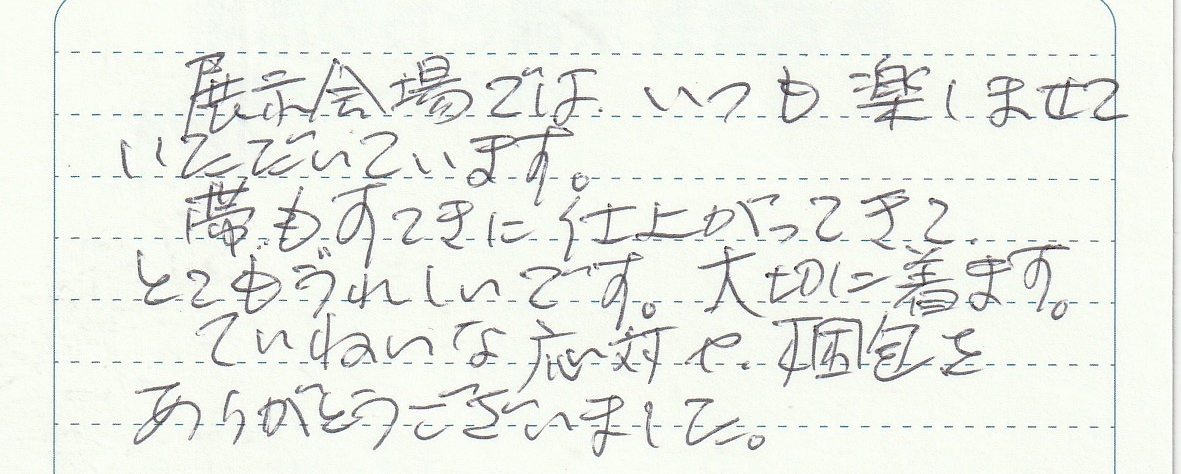 展示会場では、いつも楽しませて
いただいています。
帯もすてきに仕上がってきて、
とてもうれしいです。大切に着ます。
ていねいな応対や、梱包を
ありがとうございました。